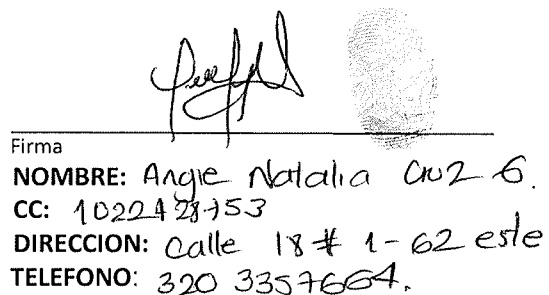 Firma
NOMBRE: Angie Natalia Cruz G.
CC: 1022428753
DIRECCION: Calle 18 # 1-62 este
TELEFONO: 320 3357664.